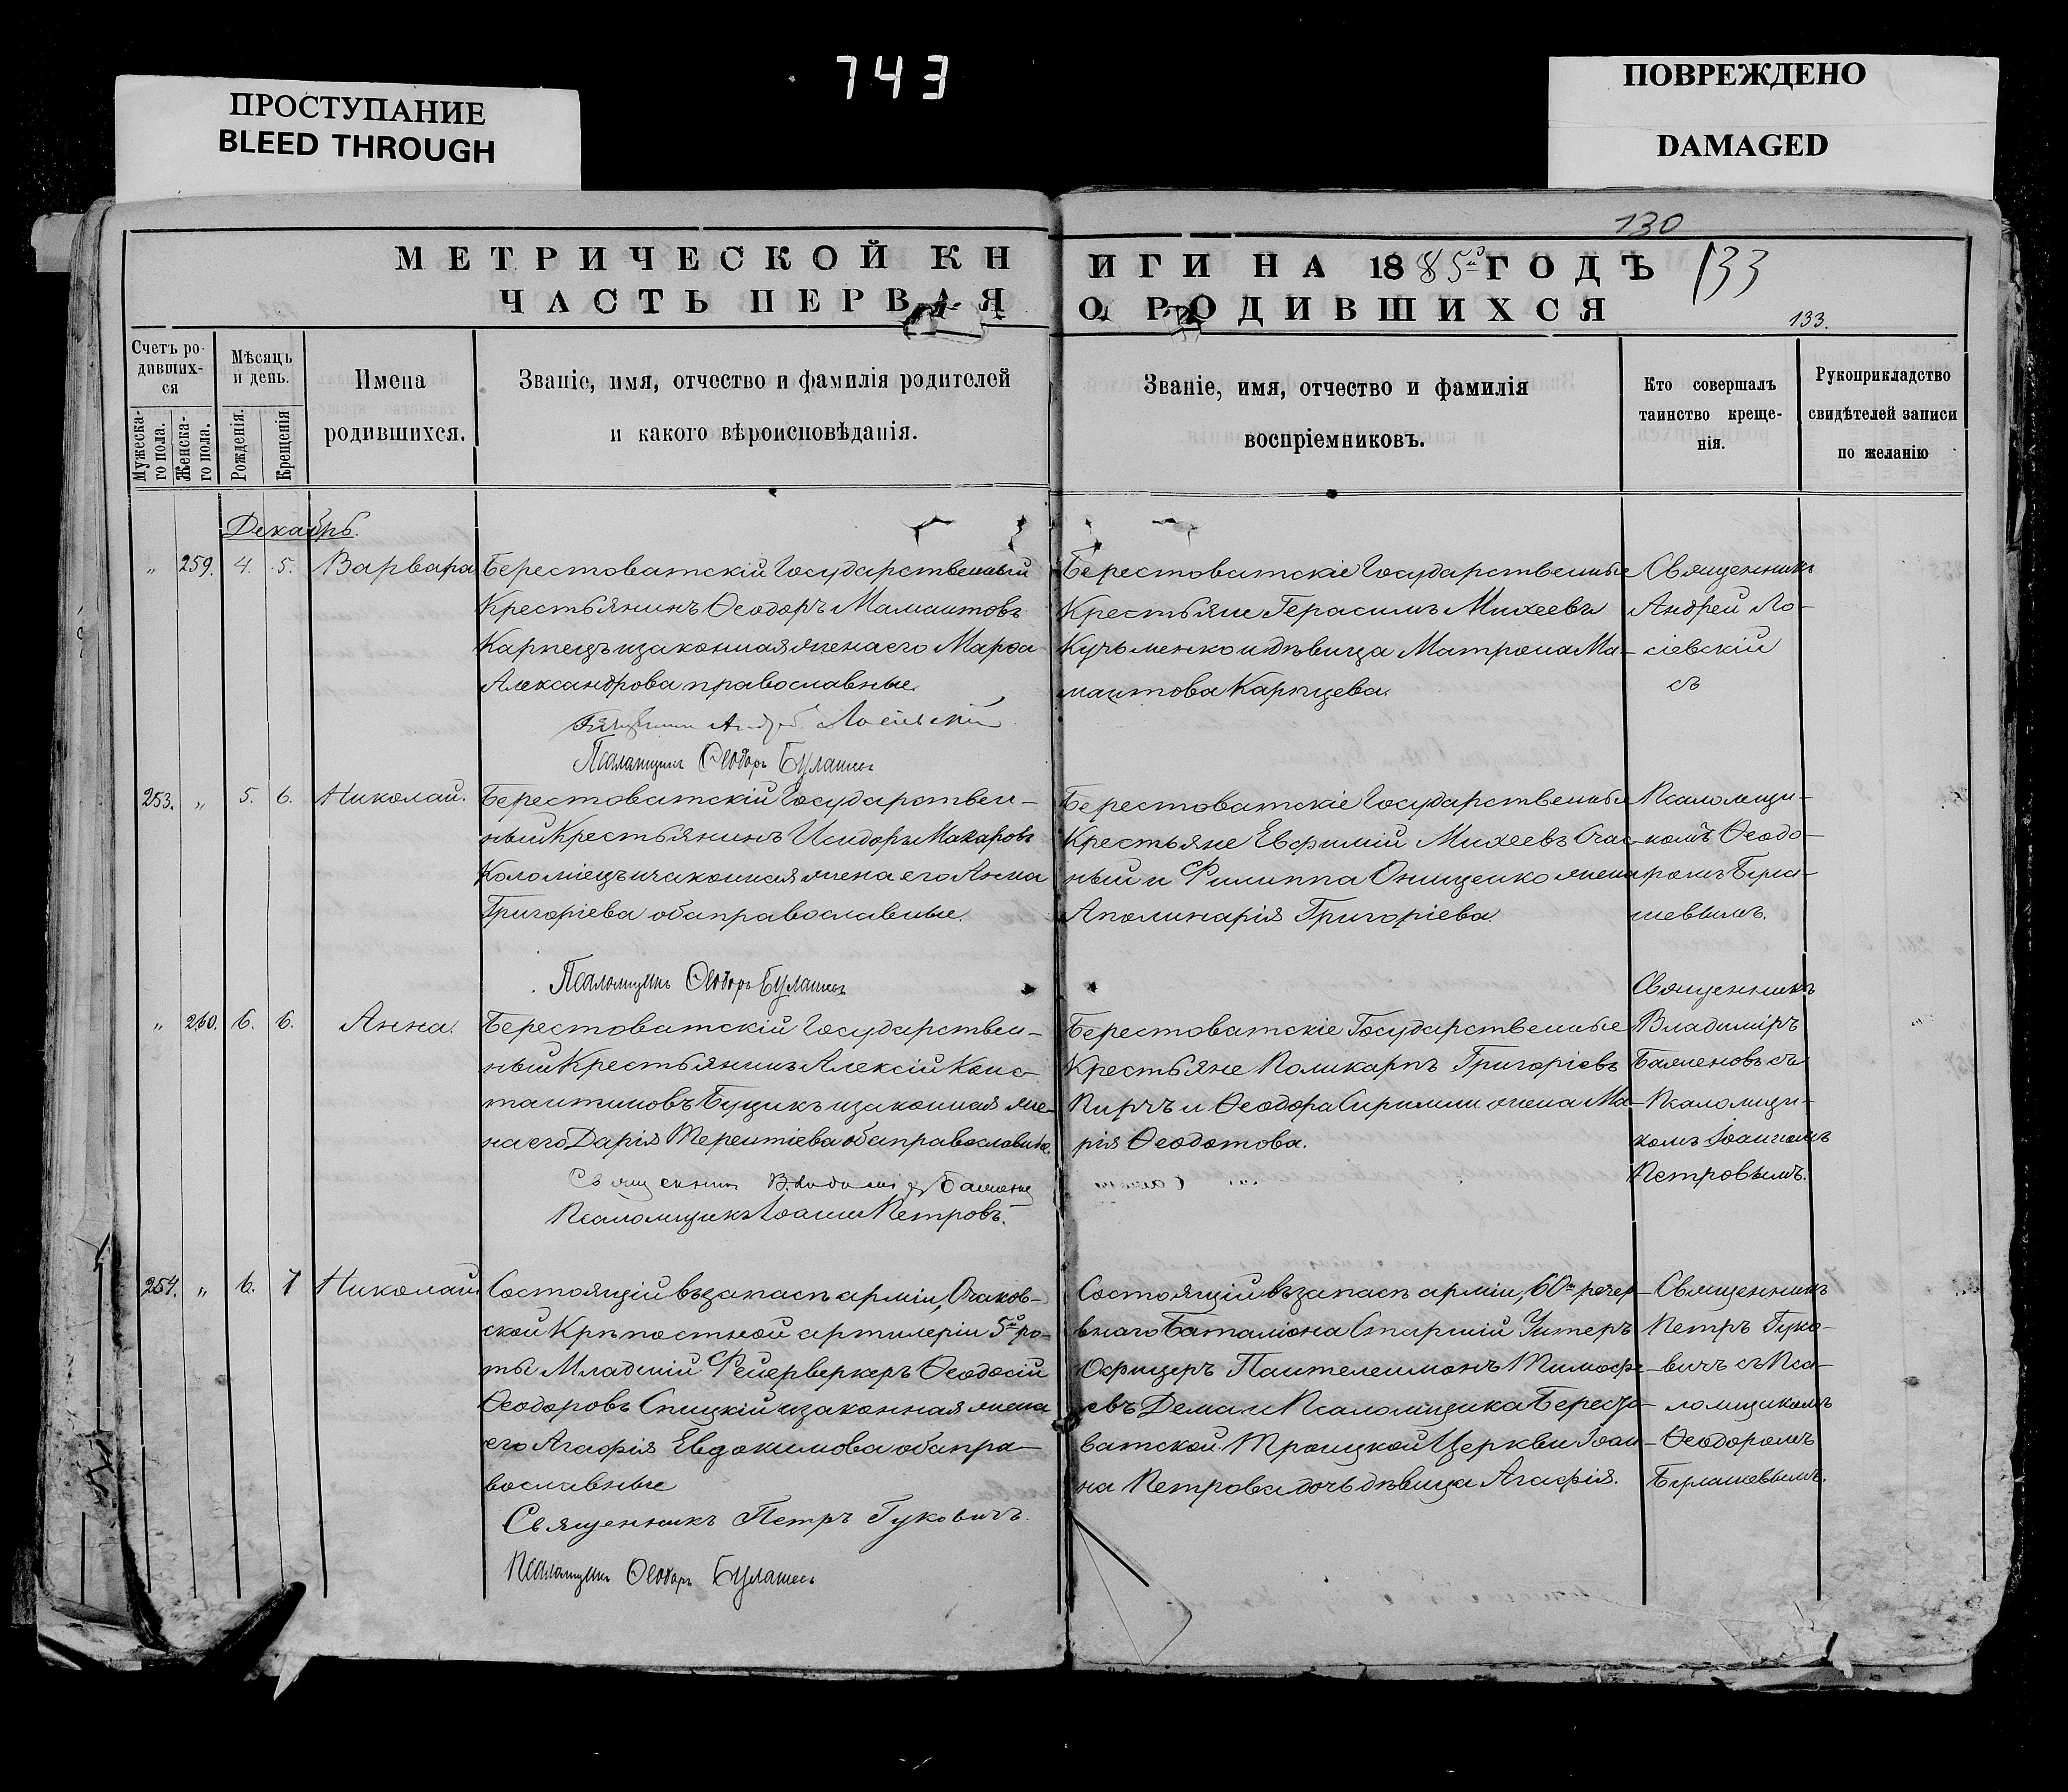 743
ПРОСТУПАНИЕ
BLEED THROUGH
ПОВРЕЖДЕНО
DAMAGED
130
МЕТРИЧЕСКОЙ КН
ИГИ НА 1885й ГОДЪ
133
ЧАСТЬ ПЕРВАЯ
О РОДИВШИХСЯ
133.
Счетъ ро-
дивших-
ся
Мужеска-
го пола.
Женска-
го пола.
Мѣсяцъ
и день.
Рожденія.
Крещенія
Имена
родившихся.
Званіе, имя, отчество и фамилія родителей
и какого вѣроисповѣданія.
Званіе, имя, отчество и фамилія
воспріемниковъ.
Кто совершалъ
таинство креще-
нія.
Рукоприкладство
свидѣтелей записи
по желанію
Декабрь.
" 259. 4. 5. Варвара
Берестоватскій Государственный
Крестьянинъ Ѳеодоръ Мамантовъ
Карпецъ и законная жена его Марѳа
Александрова православные.
Андрей Лосіевскій
Псаломщикъ Ѳеодоръ Булашевъ
Берестоватскіе Государственные
Крестьяне Герасимъ Михеевъ
Кучьменко и дѣвица Матрона Ма-
мантова Карпцева.
Священникъ
Андрей Ло-
сіевскій
съ
253. " 5. 6. Николай.
Берестоватскій Государствен-
ный Крестьянинъ Исидоръ Макаровъ
Коломіецъ и законная жена его Анна
Григоріева оба православные.
Псаломщикъ Ѳеодоръ Булашевъ
Берестоватскіе Государственные
Крестьяне Евфимій Михеевъ Счас-
ный и Филиппа Онищенко жена
Аполинарія Григоріева.
Псаломщи-
комъ Ѳеодо-
ромъ Була-
шевымъ.
" 260. 6. 6. Анна.
Берестоватскій Государствен-
ный Крестьянинъ Алексій Конс-
тантиновъ Буцикъ и законная же-
на его Дарія Терентіева оба православные.
Священникъ Владиміръ Баженовъ
Псаломщикъ Іоаннъ Петровъ.
Берестоватскіе Государственные
Крестьяне Поликарпъ Григоріевъ
и Ѳеодора жена Ма-
рія Ѳеодотова.
Священникъ
Владиміръ
Баженовъ съ
Псаломщи-
комъ Іоанномъ
Петровымъ.
254. " 6. 7 Николай
Состоящій въ запасѣ арміи, Очаков-
ской Крѣпостной артилеріи 5й ро-
ты Младшій Фейерверкеръ Ѳеодосій
Ѳеодоровъ Спицкій и законная жена
его Агафія Евдокимова оба пра-
вославные
Священникъ Петръ Гуковичъ.
Псаломщикъ Ѳеодоръ Булашевъ
Состоящій въ запасѣ арміи, 60го резер-
внаго Баталіона Старшій Унтеръ
Офицеръ Пантелеимонъ Тимофе-
евъ Дема и Псаломщика Бересто-
ватской Троицкой Церкви Іоан-
на Петрова дочь дѣвица Агафія.
Священникъ
Петръ Гуко-
вичъ съ Пса-
ломщикомъ
Ѳеодоромъ
Булашевымъ.